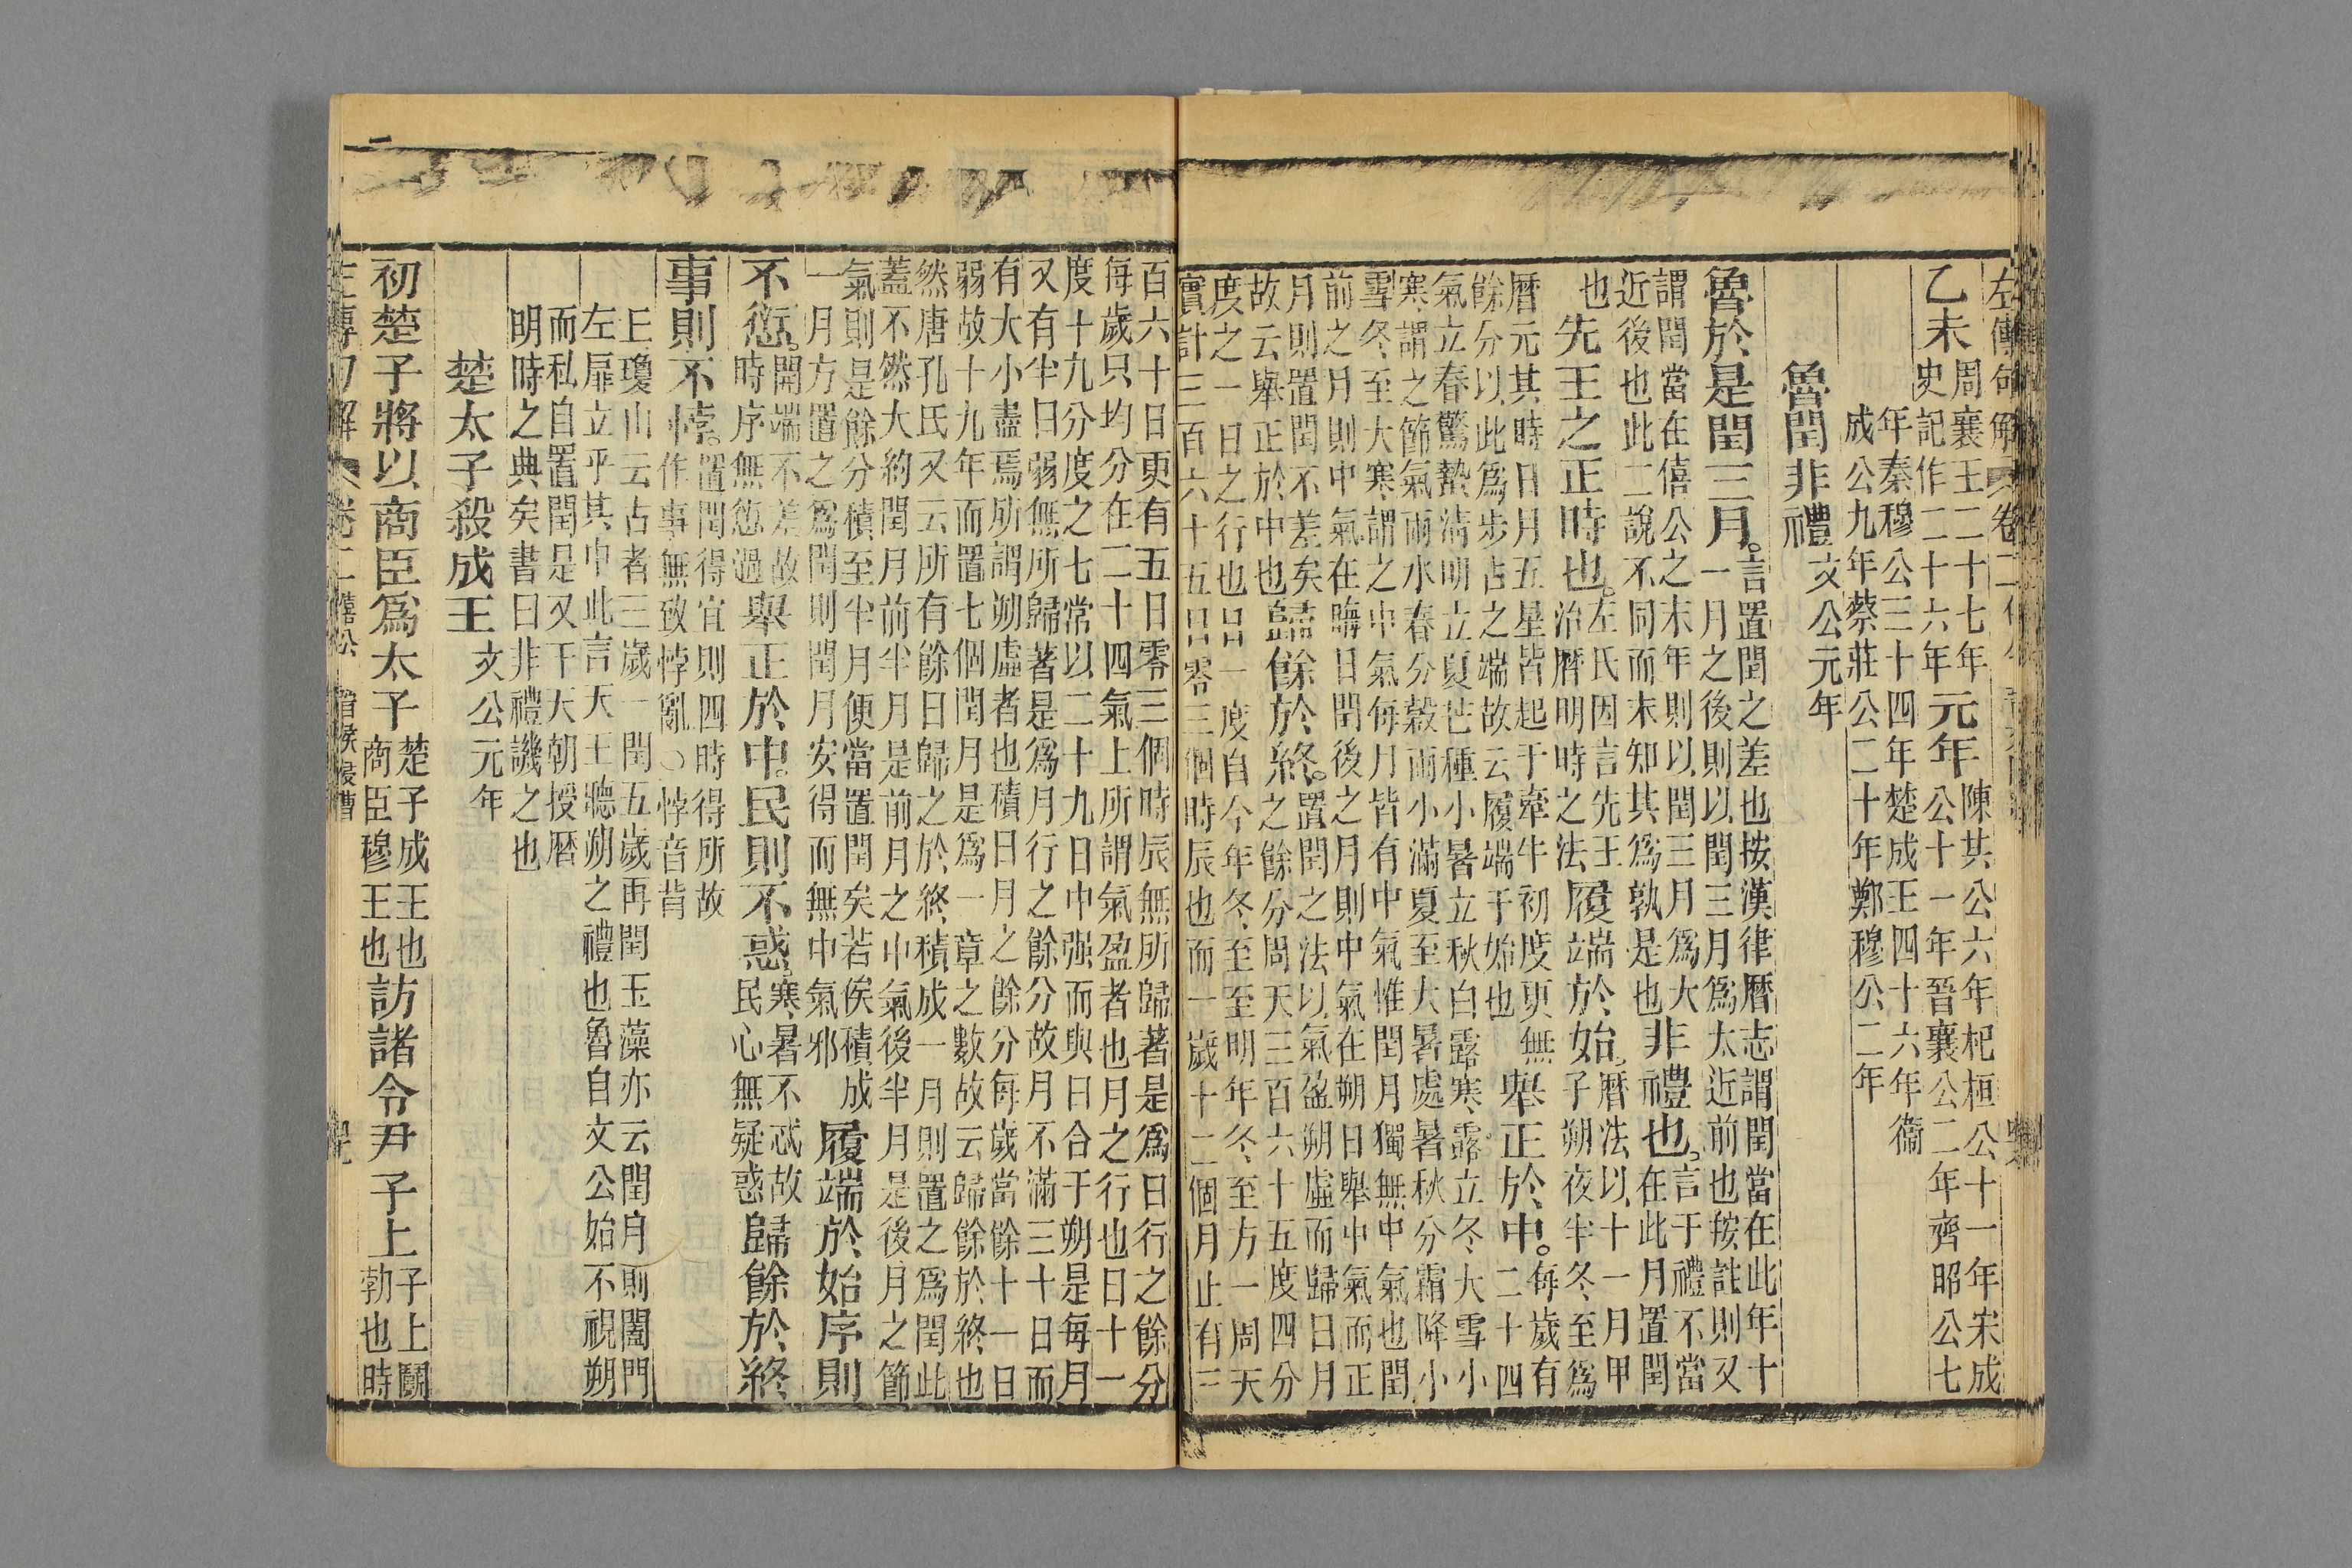 乙未
周襄王二十七年
史記作二十六年
元年
陳共公六年杞桓公十一年宋成
公十一年晉襄公二年齊昭公七
年秦穆公三十四年楚成王四十六年衞
成公九年蔡莊公二十年鄭穆公二年
魯閏非禮 文公元年
魯於是閏三月。
言置閏之差也按漢律曆志謂閏當在此年十
一月之後則以閏三月爲太近前也按註則又
謂閏當在僖公之末年則以閏三月爲大
近後也此二說不同而未知其爲孰是也
非禮也。
言于禮不當
在此月置閏
也
先王之正時也。
左氏因言先王
治曆明時之法
履端於始。
曆法以十一月甲
子朔夜半冬至爲
曆元其時日月五星皆起于牽牛初度更無
餘分以此爲步占之端故云履端于始也
舉正於中。
每歲有
二十四
氣立春驚蟄清明立夏芒種小暑立秋白露寒露立冬大雪小
寒謂之節氣雨水春分穀雨小滿夏至大暑處暑秋分霜降小
雪冬至大寒謂之中氣每月皆有中氣惟閏月獨無中氣也閏
前之月則中氣在晦日閏後之月則中氣在朔日舉中氣而正
月則置閏不差矣
故云舉正於中也
歸餘於終。
置閏之法以氣盈朔虛而歸日月
之餘分周天三百六十五度四分
度之一日之行也日一度自今年冬至至明年冬至方一周天
實計三百六十五日零三個時辰也而一歲十二個月止有三
百六十日更有五日零三個時辰無所歸著是爲日行之餘分
每歲只均分在二十四氣上所謂氣盈者也月之行也日十一
度十九分度之七常以二十九日中强而與日合于朔是每月
又有半日弱無所歸著是爲月行之餘分故月不滿三十日而
有大小盡焉所謂朔虛者也積日月之餘分每歲當餘十一日
弱故十九年而置七個閏月是爲一章之數故云歸餘於終也
然唐孔氏又云所有餘日歸之於終積成一月則置之爲閏此
蓋不然大約閏月前半月是前月之中氣後半月是後月之節
氣則是餘分積至半月便當置閏矣若俟積成
一月方置之爲閏則閏月安得而無中氣邪
履端於始序則
不愆。
開端不差故
時序無愆過
舉正於中。民則不惑。
寒暑不忒故
民心無疑惑
歸餘於終
事則不悖。
置閏得宜則四時得所故
作事無致悖亂○悖音背
丘瓊山云古者三歲一閏五歲再閏玉藻亦云閏月則闔門
左扉立乎其中此言天王聽朔之禮也魯自文公始不視朔
而私自置閏是又干天朝授曆
明時之典矣書曰非禮譏之也
楚太子殺成王 文公元年
初楚子將以商臣爲太子
楚子成王也
商臣穆王也
訪諸令尹子上
子上鬬
勃也時